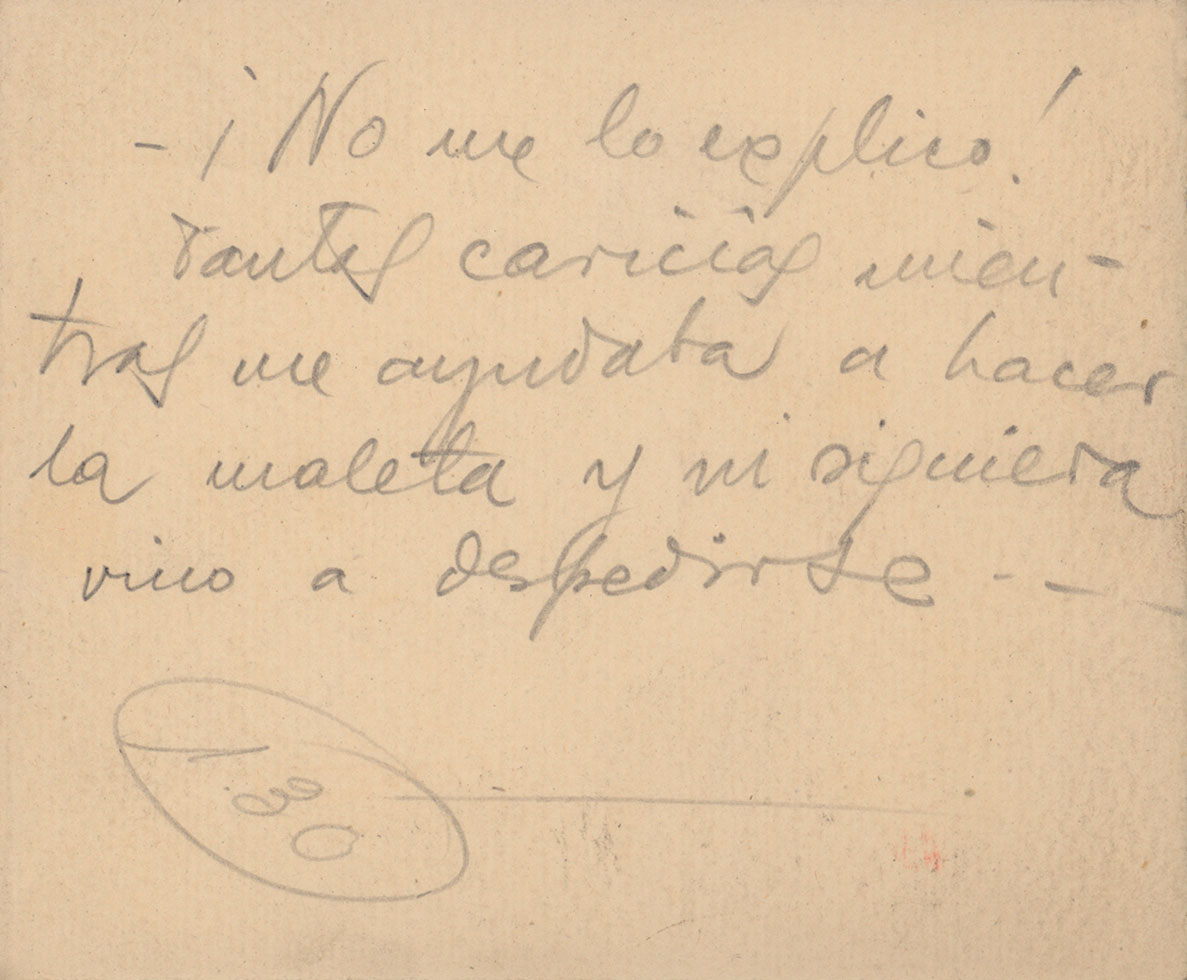 - ¡No me lo explico!
Tantas caricias mien-
tras me ayudaba a hacer
la maleta y ni siquiera
vino a despedirse - - -